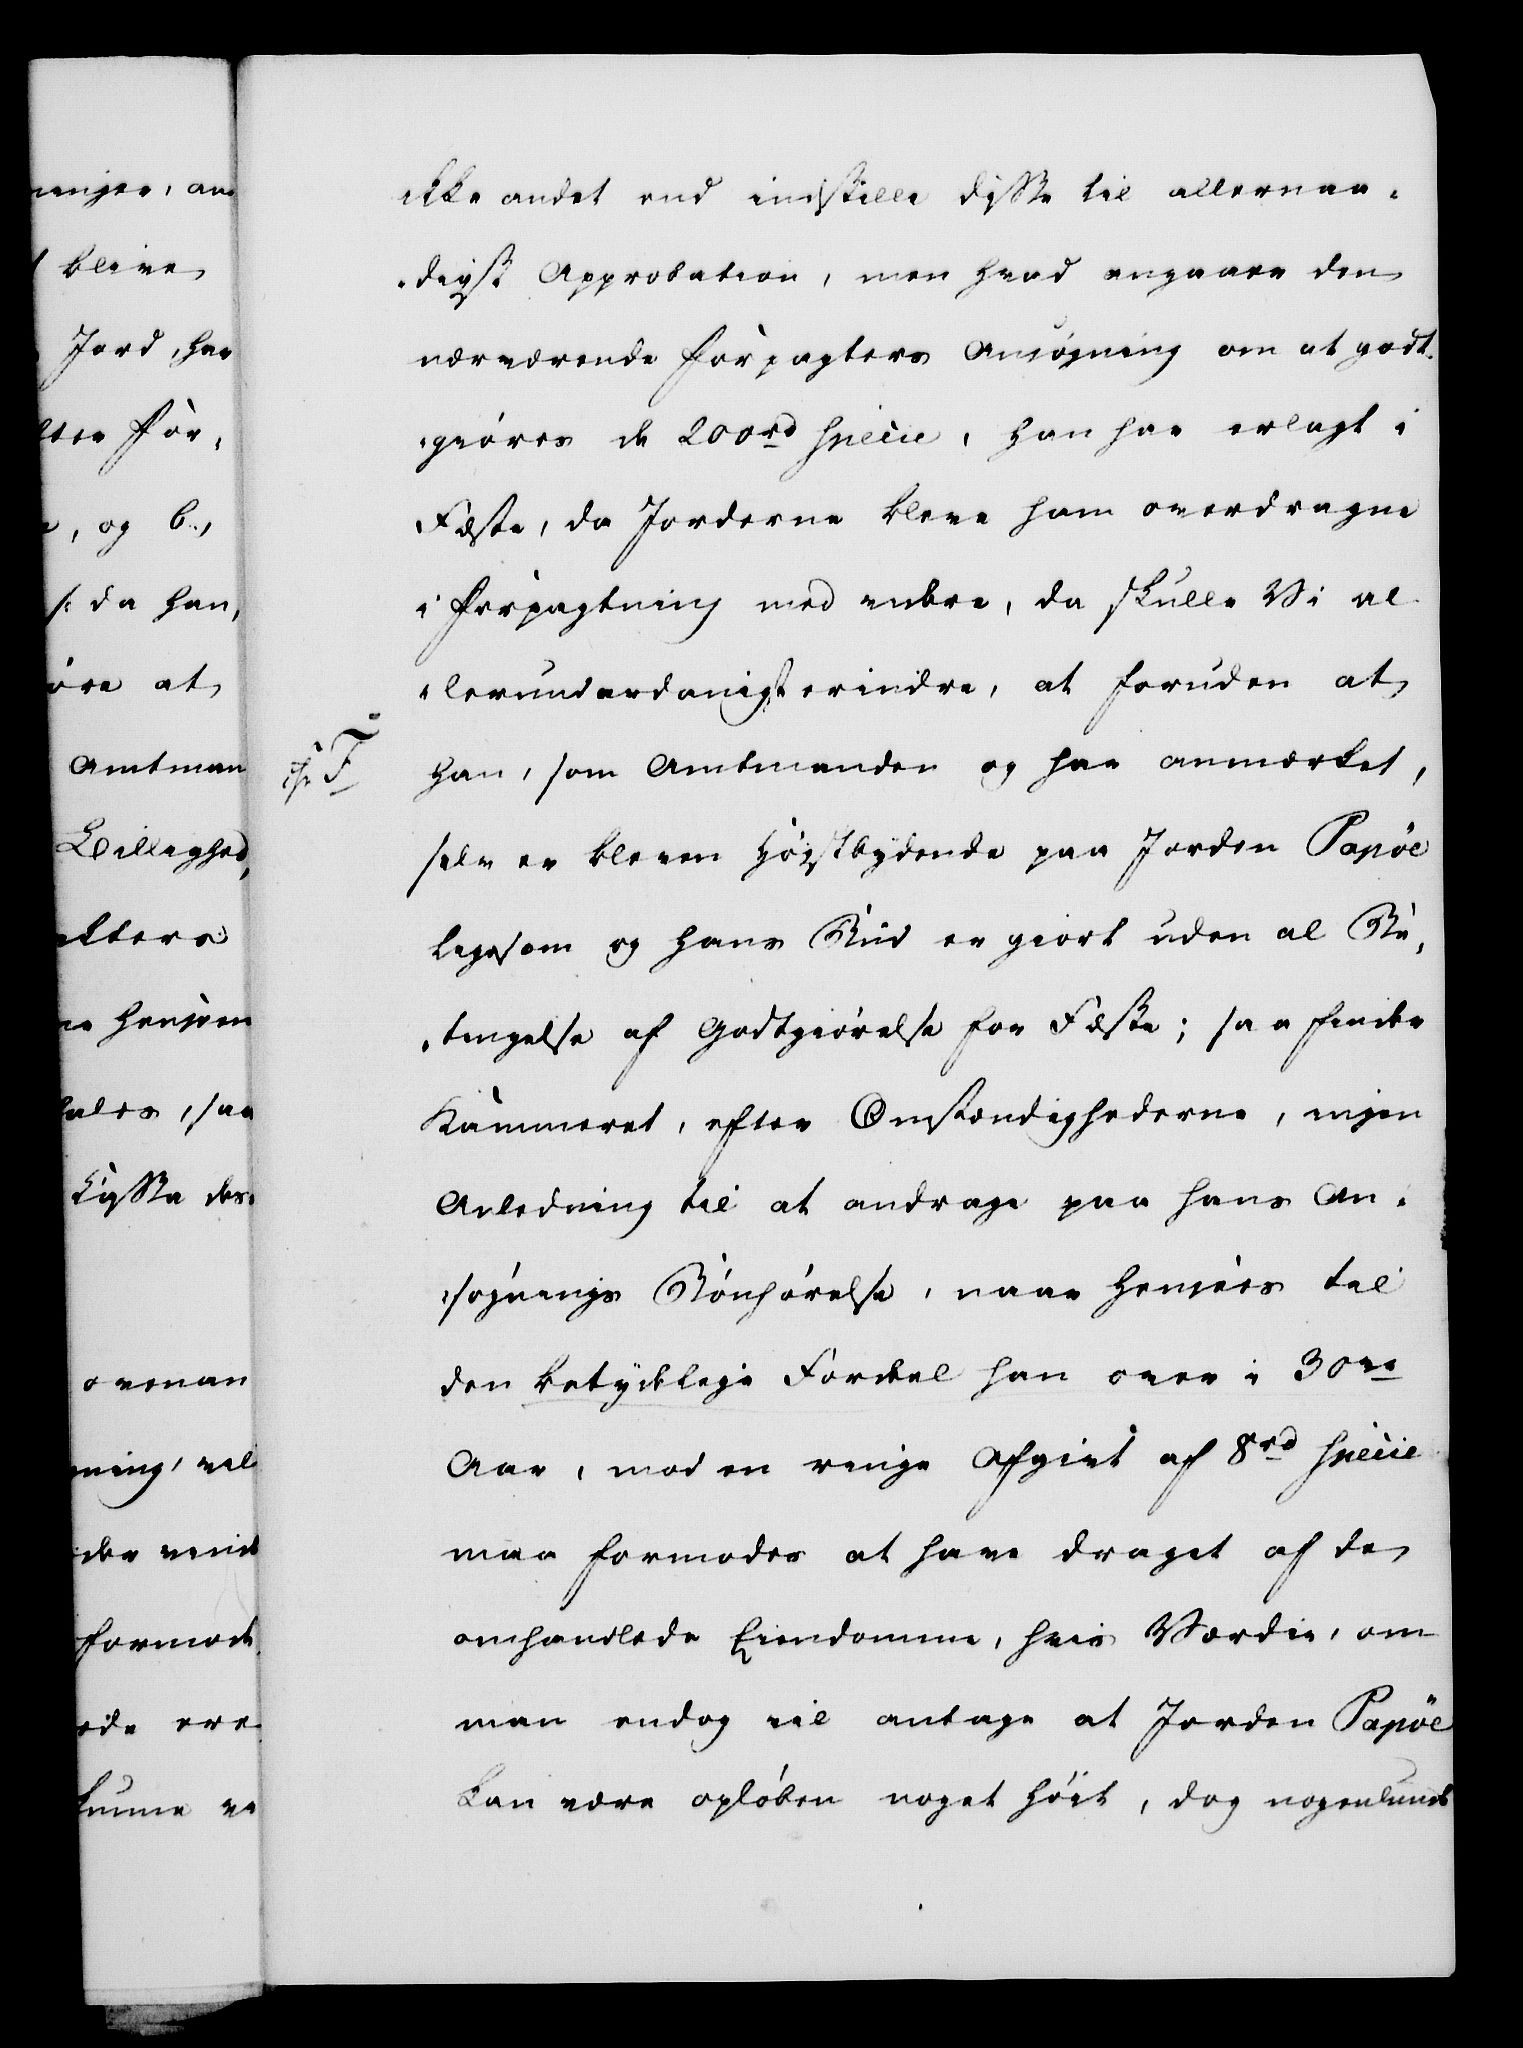 ninger, am
blive
Jord, har
For-
, og b.,
/: da han,
øre at
Amtman
Billighed,
akters
Henseen
tales, saa
Kassa des-
ovenan
ning, vel
formod
ede ere
kunne ve
ikke andet end indstille disse til allernaa-
-digst Approbation, men hvad angaaer den
nærværende Forpagters Ansøgning om at godt-
-giøres de 200rd Specie, han har erlagt i
Fæste, da Jorderne bleve ham overdragne
i Forpagtning med videre, da skulle Vi al-
-lerunderdanigst erindre, at foruden at
F
han, som Amtmanden og har anmærket,
selv er bleven Høistbydende paa Jorden Papöe
ligesom og hans Bud er giort uden al Be-
-tingelse af Godtgiørelse for Fæste; saa finder
Kammeret, efter Omstændighederne, ingen
Anledning til at andrage paa hans An-
-søgnings Bønhørelse, naar Hensees til
den betydelige Fordeel han over i 30ve
Aar, mod en ringe Afgivt af 8rd Specie
maa formodes at have draget af de
omhandlede Eiendomme, hvis Værdie, om
man endog vil antage at Jorden Papöe
kan være opløben noget høit, dog nogenlunde